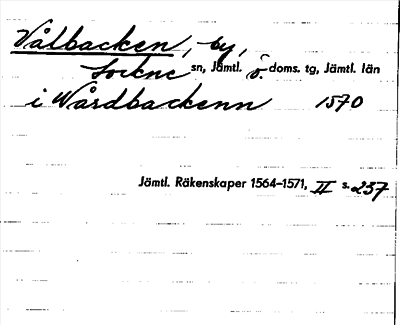 Vålbacken, by,
Lockne sn, Jämtl. ö. doms. tg, Jämtl. län
i Wårdbackenn 1570
Jämtl. Räkenskaper 1564–1571, II s. 237